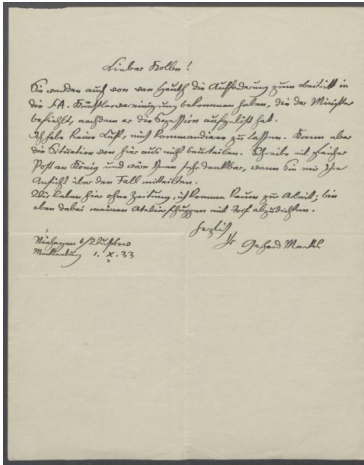 Lieber Kolbe!
Sie werden auch von von Hauth die Aufforderung zum Beitritt in
die S.A. Künstlervereinigung bekommen haben, die der Minister
befiehlt, nachdem er die Sezession aufgelöst hat.
Ich habe keine Lust, mich kommandieren zu lassen. Kann aber
die Situation von hier aus nicht beurteilen. Schreibe mit gleicher
Post an König und wäre Ihnen sehr dankbar, wenn Sie mir Ihre
Ansicht über den Fall mitteilten.
Wir leben hier ohne Zeitung, ich komme kaum zur Arbeit; bin
eben dabei meinen Atelierschuppen mit Torf abzudichten.
Herzlich
Ihr Gerhard Marcks
Niehagen b/Althagen
Mecklenburg 1. X. 33